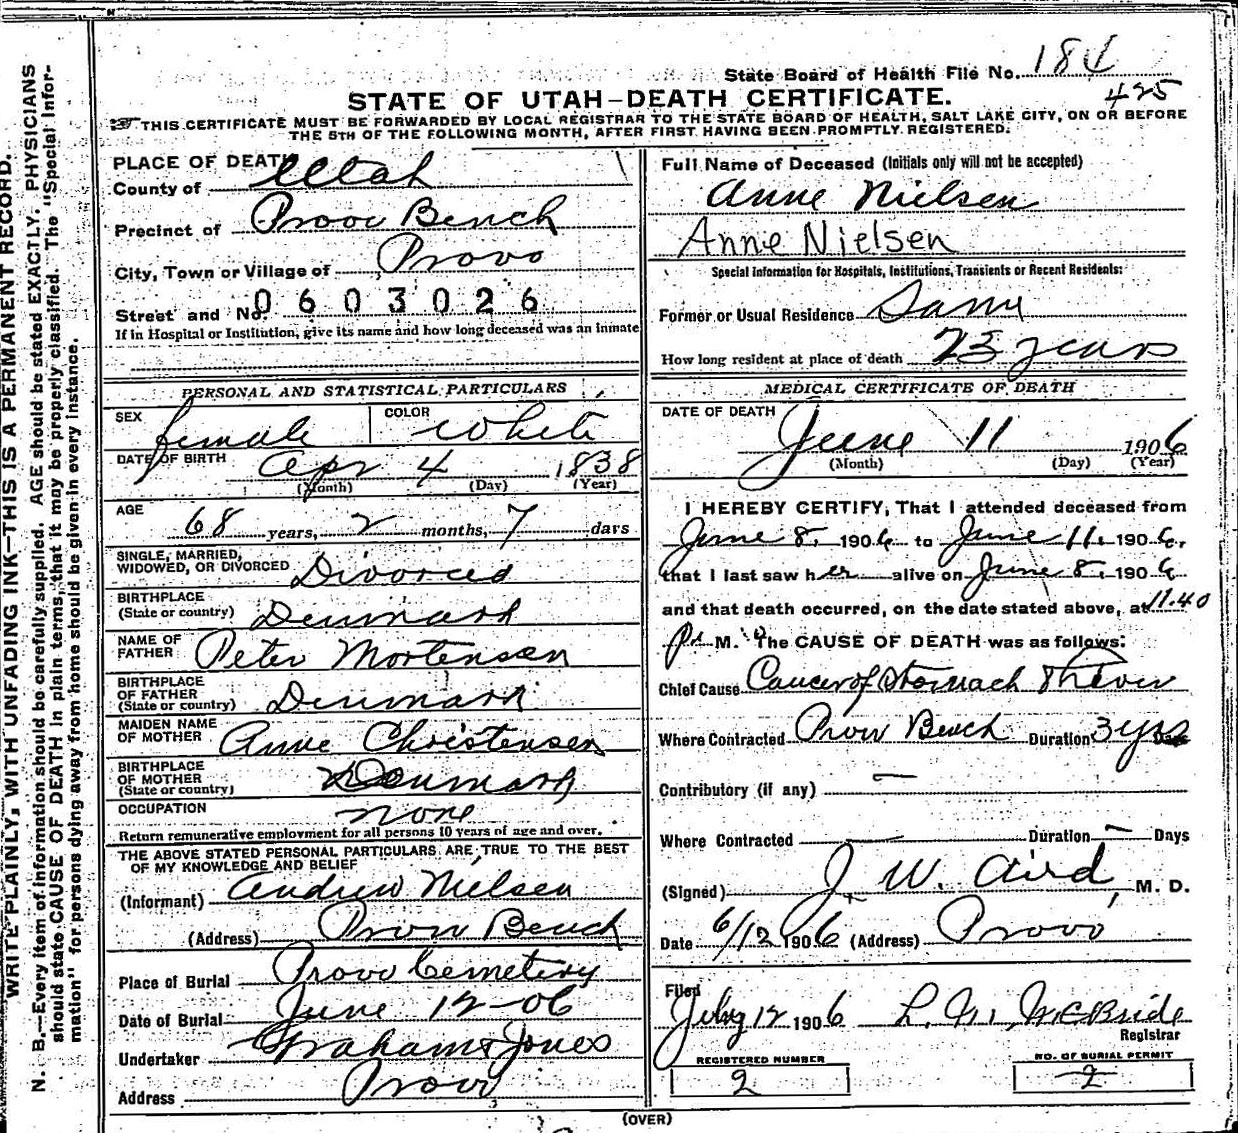 State Board of Health File No. 184
425
STATE OF UTAH—DEATH CERTIFICATE.
THIS CERTIFICATE MUST BE FORWARDED BY LOCAL REGISTRAR TO THE STATE BOARD OF HEALTH, SALT LAKE CITY, ON OR BEFORE
THE 5TH OF THE FOLLOWING MONTH, AFTER FIRST HAVING BEEN PROMPTLY REGISTERED.
WRITE PLAINLY, WITH UNFADING INK—THIS IS A PERMANENT RECORD.
N. B.—Every item of information should be carefully supplied. AGE should be stated EXACTLY. PHYSICIANS
should state CAUSE OF DEATH in plain terms, that it may be properly classified. The "Special Infor-
mation" for persons dying away from home should be given in every instance.
PLACE OF DEATH
County of Utah
Precinct of Provo Bench
City, Town or Village of Provo
Street and No. 0603026
If in Hospital or Institution, give its name and how long deceased was an inmate
PERSONAL AND STATISTICAL PARTICULARS
SEX female COLOR White
DATE OF BIRTH Apr 4 1838
(Month) (Day) (Year)
AGE 68 years, 2 months, 7 days
SINGLE, MARRIED,
WIDOWED, OR DIVORCED Divorced
BIRTHPLACE
(State or country) Denmark
NAME OF
FATHER Peter Mortensen
BIRTHPLACE
OF FATHER
(State or country) Denmark
MAIDEN NAME
OF MOTHER Anne Christensen
BIRTHPLACE
OF MOTHER
(State or country) Denmark
OCCUPATION none
Return remunerative employment for all persons 10 years of age and over.
THE ABOVE STATED PERSONAL PARTICULARS ARE TRUE TO THE BEST
OF MY KNOWLEDGE AND BELIEF
(Informant) Andrew Nielsen
(Address) Provo Bench
Place of Burial Provo Cemetery
Date of Burial June 12-06
Undertaker Graham & Jones
Address Provo
Full Name of Deceased (Initials only will not be accepted)
Anne Nielsen
Anne Nielsen
Special Information for Hospitals, Institutions, Transients or Recent Residents:
Former or Usual Residence Same
How long resident at place of death 23 years
MEDICAL CERTIFICATE OF DEATH
DATE OF DEATH June 11 1906
(Month) (Day) (Year)
I HEREBY CERTIFY, That I attended deceased from
June 8, 1906 to June 11, 1906,
that I last saw her alive on June 8, 1906
and that death occurred, on the date stated above, at 11.40
P. M. The CAUSE OF DEATH was as follows:
Chief Cause Cancer of Stomach & Liver
Where Contracted Provo Bench Duration 3 yrs
Contributory (if any) —
Where Contracted — Duration — Days
(Signed) J. W. Aird, M. D.
Date 6/12 1906 (Address) Provo
Filed
July 12 1906 L. M. McBride
Registrar
REGISTERED NUMBER
2
NO. OF BURIAL PERMIT
2
(OVER)